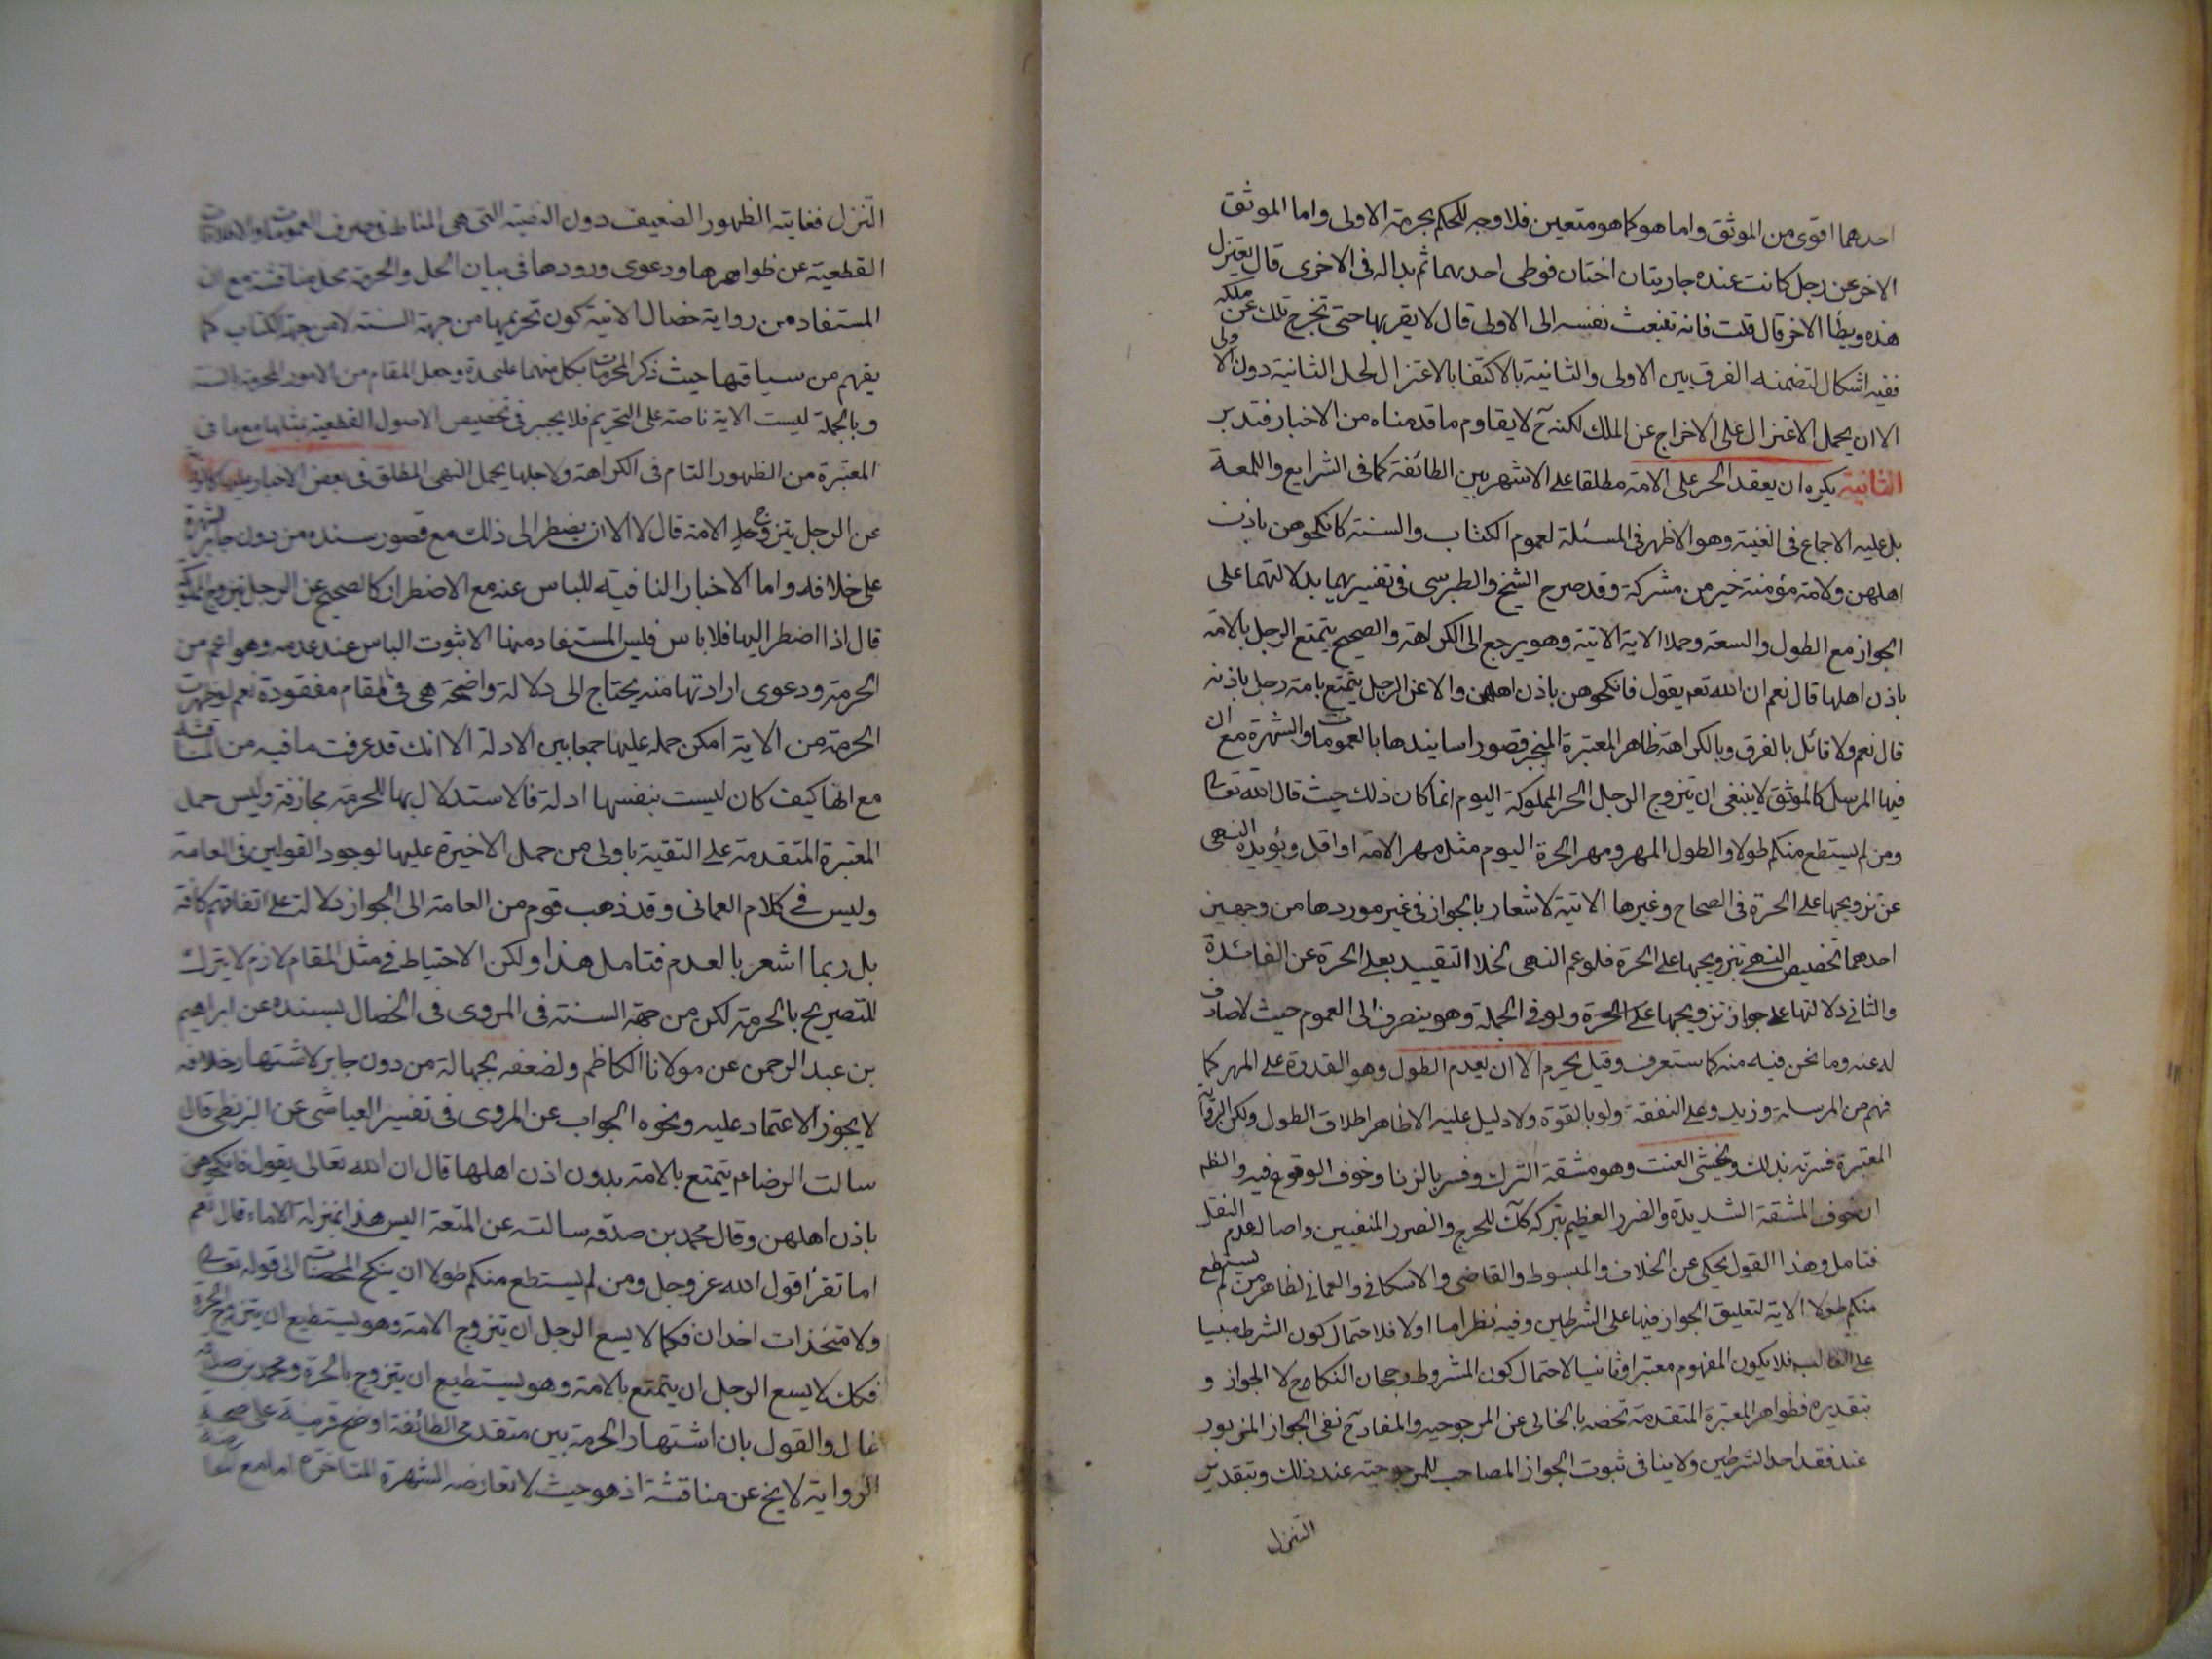 احدهما اقوى من الموثق واما هو كما هو متعين فلا وجه للحكم بحرمة الاولى واما الموثق
الاخر عن رجل كانت عنده جاريتان اختان فوطى احديهما ثم بدا له فى الاخرى قال يعتزل
هذه ويطأ الاخر قال قلت فانه تنبعث نفسه الى الاولى قال لا يقربها حتى تخرج تلك عن ملكه
ففيه اشكال لتضمنه الفرق بين الاولى والثانية بالاكتفا بالاعتزال لحل الثانية دون الاولى
الا ان يحمل الاعتزال على الاخراج عن الملك لكنه ح لا يقاوم ما قدمناه من الاخبار فتدبر
الثانية يكره ان يعقد الحر على الامة مطلقا على الاشهر بين الطائفة كما فى الشرايع واللمعة
بل عليه الاجماع فى الغنية وهو الاظهر فى المسئلة لعموم الكتاب والسنة كانكحوهن باذن
اهلهن ولامة مؤمنة خير من مشركة وقد صرح الشيخ والطبرسى فى تفسيريهما بدلالتهما على
الجواز مع الطول والسعة وحملا الاية الاتية وهو يرجع الى الكراهة والصحيح يتمتع الرجل بالامة
باذن اهلها قال نعم ان الله تعه يقول فانكحوهن باذن اهلهن والا عن الرجل يتمتع بامة رجل باذنه
قال نعم ولا قائل بالفرق وبالكراهة ظاهر المعتبرة المنجبر قصور اسانيدها بالعمومات والشهرة مع ان
فيها المرسل كالموثق لا ينبغى ان يتزوج الرجل الحر المملوكة اليوم انما كان ذلك حيث قال الله تعالى
ومن لم يستطع منكم طولا والطول المهر ومهر الحرة اليوم مثل مهر الامة او اقل ويؤيده النهى
عن تزويجها على الحرة فى الصحاح وغيرها الاتية لاشعار بالجواز فى غير موردها من وجهين
احدهما تخصيص النهى بتزويجها على الحرة فلو عم النهى لخلا التقييد بعلى الحرة عن الفائدة
والثانى دلالتها على جواز تزويجها على الحرة ولو فى الجملة وهو ينصرف الى العموم حيث لا صارف
له عنه وما نحن فيه منه كما ستعرف وقيل يحرم الا ان يعدم الطول وهو القدرة على المهر كما
فهم من المرسلة وزيد وعلى النفقة ولو بالقوة ولا دليل عليه الا ظاهر اطلاق الطول ولكن الرواية
المعتبرة فسرته بذلك ويخشى العنت وهو مشقة الترك وفسر بالزنا وخوف الوقوع فيه والظ
ان خوف المشقة الشديدة والضرر العظيم بتركه كآك للحرج والضرر المنفيين واصالة عدم النقل
فتامل وهذا القول يحكى عن الخلاف والمبسوط والقاضى والاسكافى والعمانى لظاهر من لم يستطع
منكم طولا الاية لتعليق الجواز فيها على الشرطين وفيه نظر اما اولا فلاحتمال كون الشرط مبنيا
على الغالب فلا يكون المفهوم معتبرا وثانيا لاحتمال كون المشروط رجحان النكاح لا الجواز و
بتقديره فظواهر المعتبرة المتقدمة تخصه بالخالى عن المرجوحية والمفاد ح نفى الجواز المزبور
عند فقد احد الشرطين ولا ينافى ثبوت الجواز المصاحب للمرجوحية عند ذلك وبتقدير
التنزل
التنزل فغايته الظهور الضعيف دون النصية التى هى المناط فى صرف العمومات والاطلاقات
القطعية عن ظواهرها ودعوى ورودها فى بيان الحل والحرمة محل مناقشة مع ان
المستفاد من رواية خصال الاتية كون تحريمها من جهة السنة لا من جهة الكتاب كما
يفهم من سياقها حيث ذكر المحرمات بكل منهما عليحدة وجعل المقام من الامور المحرمة بالسنة
وبالجملة ليست الاية ناصة على التحريم فلا يجسر فى تخصيص الاصول القطعية بمثلها مع ما فى
المعتبرة من الظهور التام فى الكراهة ولاجلها يحمل النهى المطلق فى بعض الاخبار عليها
عن الرجل يتزوج الامة قال لا الا ان يضطر الى ذلك مع قصور سنده من دون جابر للشهرة
على خلافه واما الاخبار النافية للباس عنه مع الاضطرار كالصحيح عن الرجل يتزوج المملوكة
قال اذا اضطر اليها فلا باس فليس المستفاد منها الا ثبوت الباس عند عدمه وهو اعم من
الحرمة ودعوى ارادتها منه يحتاج الى دلالة واضحة هى فى المقام مفقودة نعم لو ظهرت
الحرمة من الاية امكن حمله عليها جمعا بين الادلة الا انك قد عرفت ما فيه من المناقشة
مع انها كيف كان ليست بنفسها ادلة فالاستدلال بها للحرمة مجازفة وليس حمل
المعتبرة المتقدمة على التقية باولى من حمل الاخيرة عليها لوجود القولين فى العامة
وليس فى كلام العمانى وقد ذهب قوم من العامة الى الجواز دلالة على اتفاقهم كافة
بل ربما اشعر بالعدم فتامل هذا ولكن الاحتياط فى مثل المقام لازم لا يترك
للتصريح بالحرمة لكن من جهة السنة فى المروى فى الخصال بسنده عن ابراهيم
بن عبد الرحمن عن مولانا الكاظم ولضعفه بجهالة من دون جابر لاشتهار خلافه
لا يجوز الاعتماد عليه ونحوه الجواب عن المروى فى تفسير العياشى عن البزنطى قال
سالت الرضا عم يتمتع بالامة بدون اذن اهلها قال ان الله تعالى يقول فانكحوهن
باذن اهلهن وقال محمد بن صدقه سالته عن المتعة اليس هذا بمنزلة الاماء قال نعم
اما تقرأ قول الله عز وجل ومن لم يستطع منكم طولا ان ينكح المحصنات الى قوله تعالى
ولا متخذات اخدان فكما لا يسع الرجل ان يتزوج الامة وهو يستطيع ان يتزوج الحرة
فكك لا يسع الرجل ان يتمتع بالامة وهو يستطيع ان يتزوج بالحرة ومحمد بن صدقه
غال والقول بان اشتهار الحرمة بين متقدمى الطائفة اوضح قرينة على صحة
الرواية لا يخ عن مناقشة اذ هو حيث لا تعارضه الشهرة المتاخرة اما مع